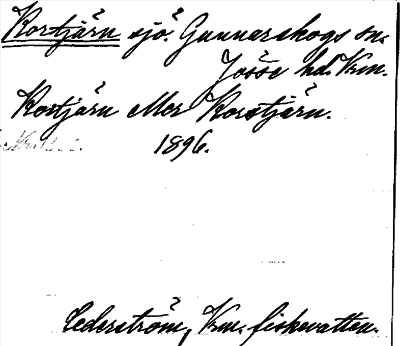 Kortjärn sjö. Gunnarskogs sn.
Jösse hd. Vrm.
Kortjärn eller Korstjärn.
1896.
Cederström, Vrm. fiskevatten.